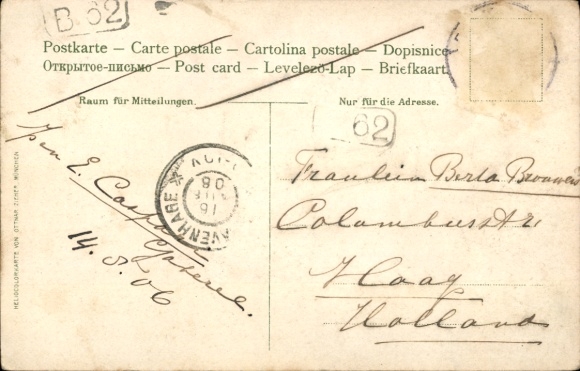 B. 62
Postkarte – Carte postale – Cartolina postale – Dopisnice
Открытое-письмо – Post card – Levelezö-Lap – Briefkaart
Raum für Mitteilungen.
Nur für die Adresse.
62
Fraulein Berta Brouwer
Columbusstr
Haag
Holland
E.
14. 8. 06
16
08
AVENHAGE
HELIOCOLORKARTE VON OTTMAR ZIEHER, MÜNCHEN